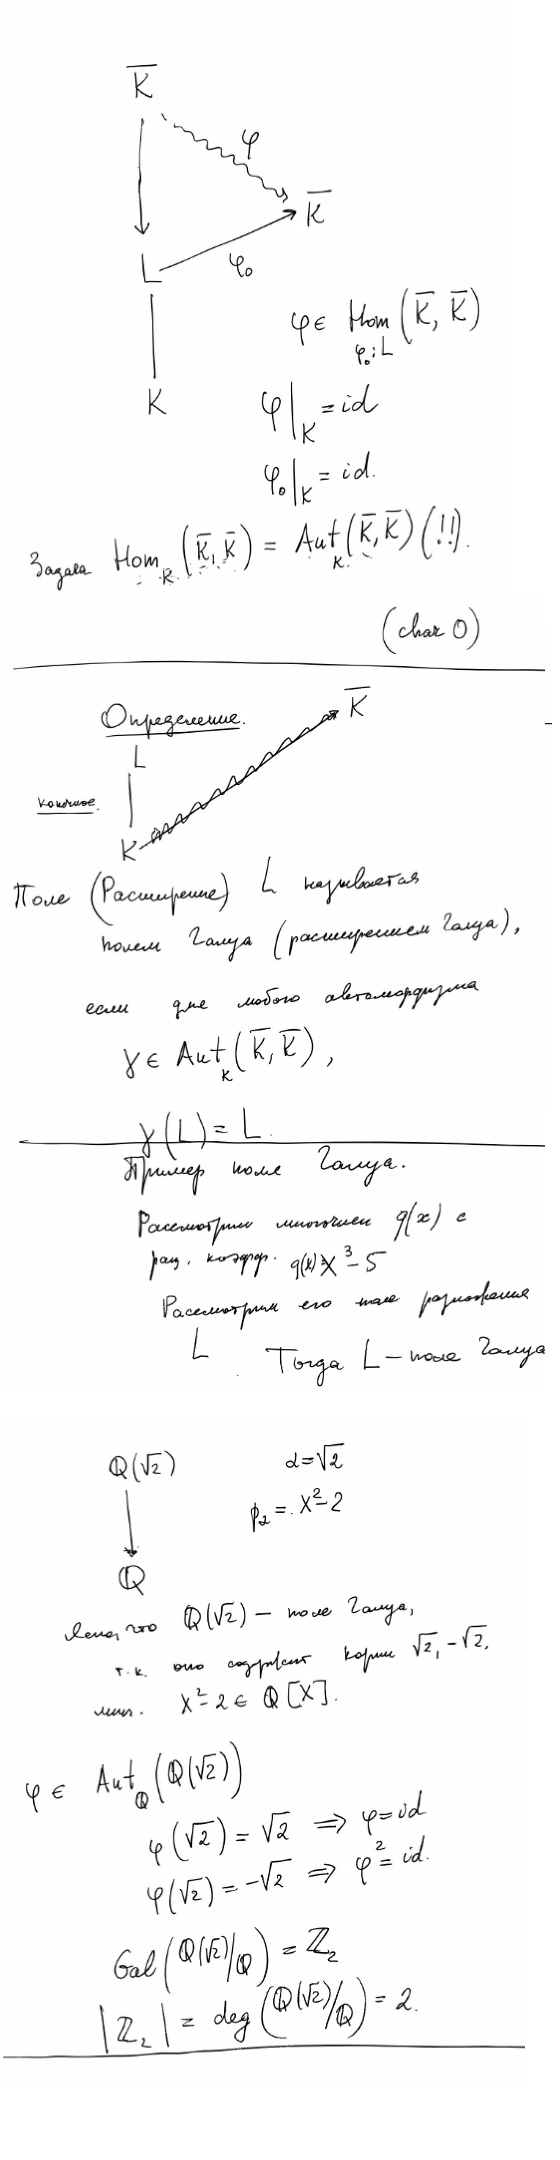 K̅
φ
K̅
L
φ₀
φ ∈ Hom (K̅, K̅)
φ₀:L
K
φ|_K = id
φ₀|_K = id.
Задача Hom_K (K̅, K̅) = Aut_K (K̅, K̅) (!!).
(char 0)
Определение.
K̅
L
конечное.
K
Поле (Расширение) L называется
полем Галуа (расширением Галуа),
если для любого автоморфизма
γ ∈ Aut_K (K̅, K̅),
γ(L) = L.
Пример поле Галуа.
Рассмотрим многочлен q(x) с
рац. коэфф. q(x) = X³ - 5
Рассмотрим его поле разложения
L. Тогда L – поле Галуа
Q(√2)
α = √2
p₂ = X² - 2
Q
Ясно, что Q(√2) – поле Галуа,
т.к. оно содержит корни √2, -√2,
мин. X² - 2 ∈ Q[X].
φ ∈ Aut_Q (Q(√2))
φ(√2) = √2 ⇒ φ = id
φ(√2) = -√2 ⇒ φ² = id.
Gal(Q(√2)/Q) = Z₂
|Z₂| = deg(Q(√2)/Q) = 2.